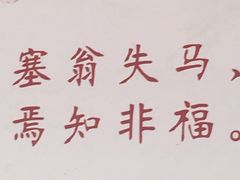 塞翁失马、
焉知非福。